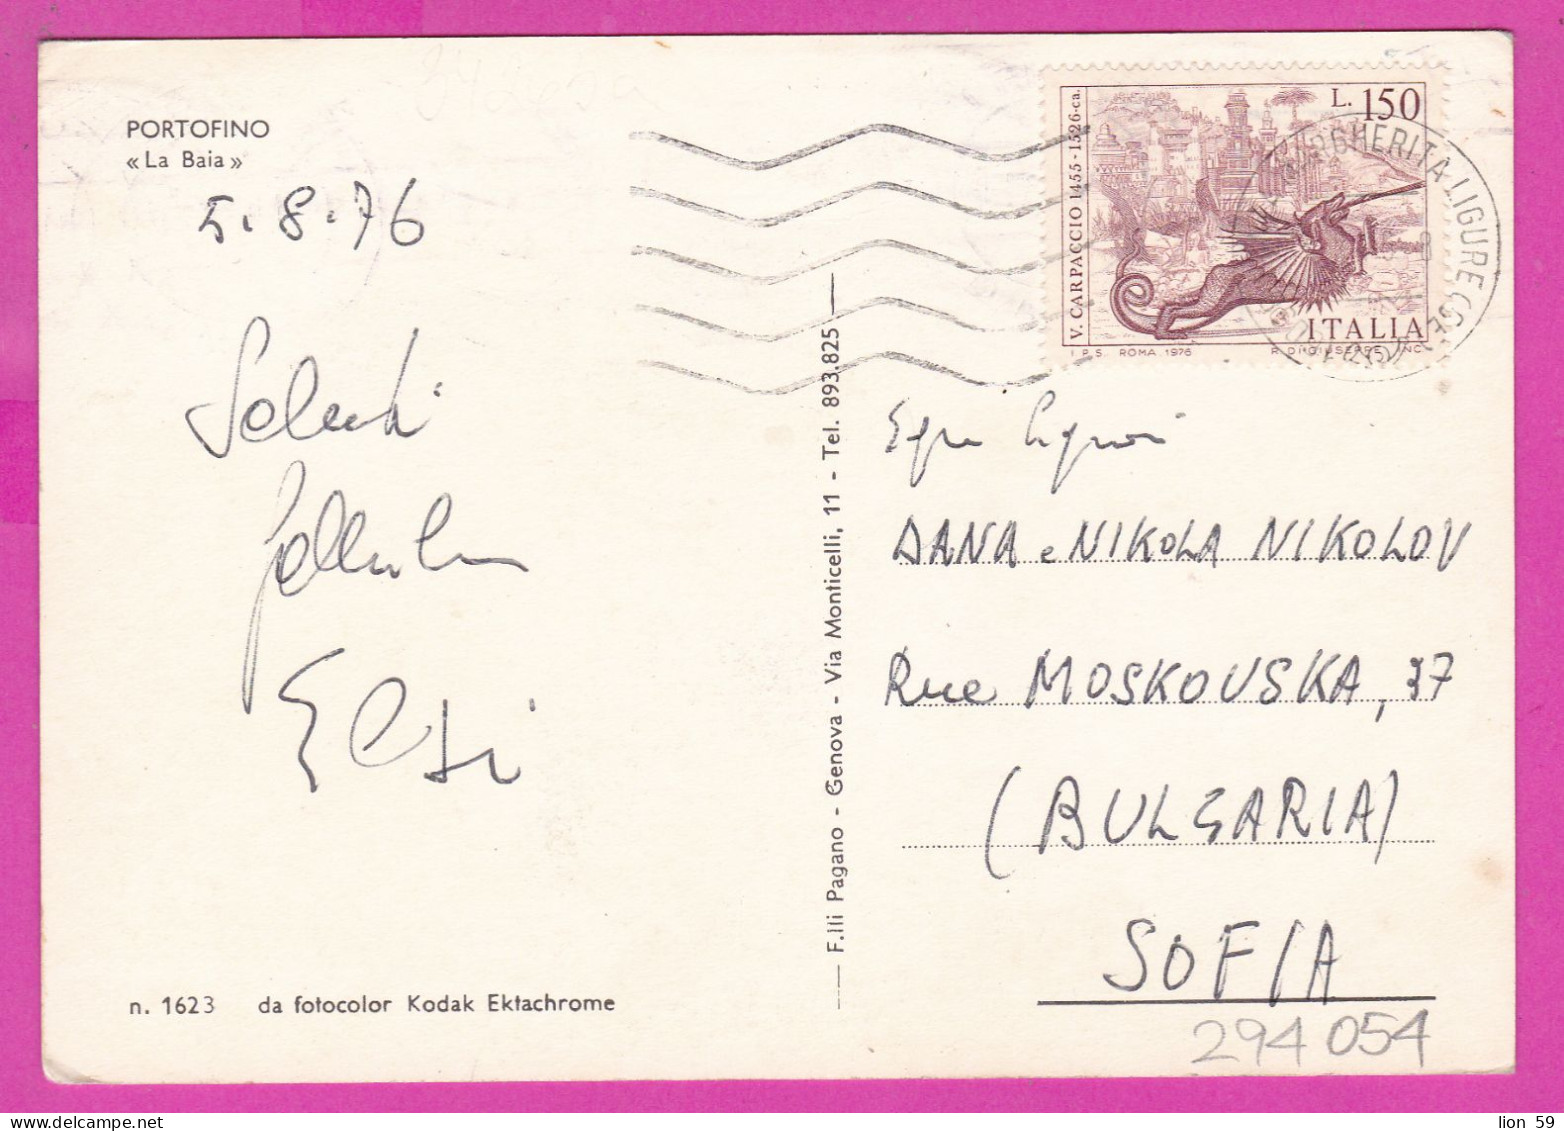 PORTOFINO
«La Baia»
5.8.76
Saluti
Elsi
n. 1623 da fotocolor Kodak Ektachrome
F.lli Pagano - Genova - Via Monticelli, 11 - Tel. 893.825
V. CARPACCIO 1455-1526-ca.
L. 150
ITALIA
I.P.S. ROMA 1976
MARGHERITA LIGURE (GE)
Egri Signori
DANA e NIKOLA NIKOLOV
Rue MOSKOVSKA, 37
(BULGARIA)
SOFIA
294054
lion 59